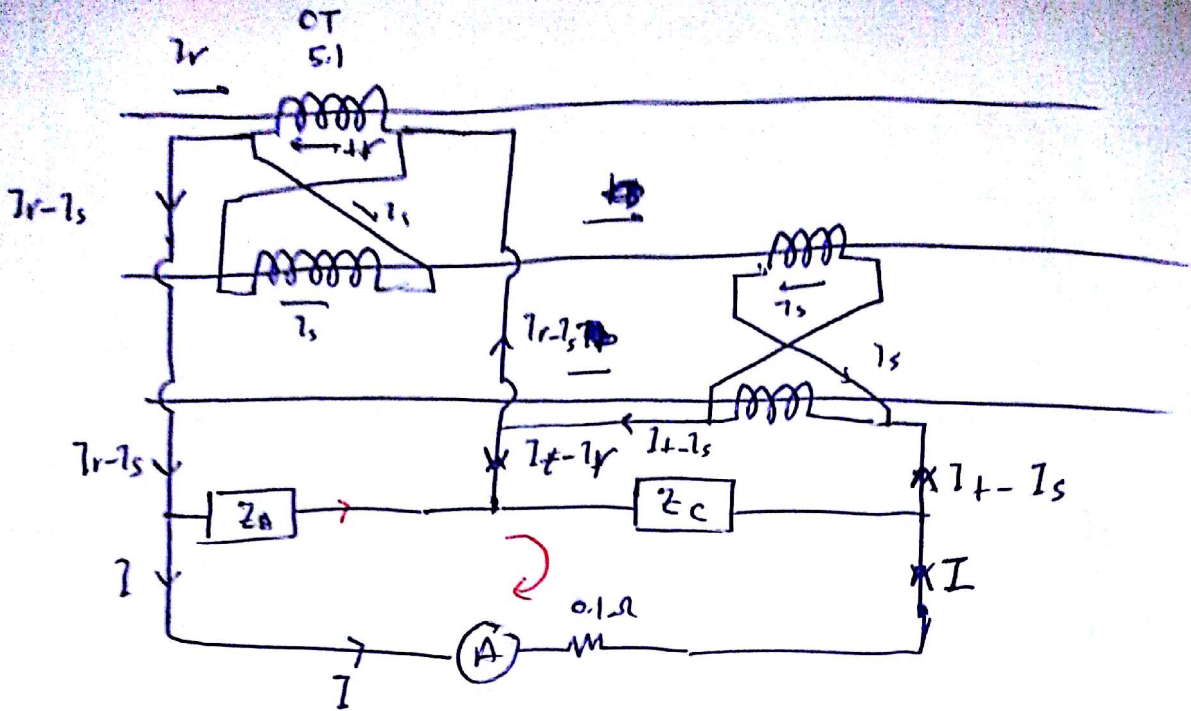 CT
5.1
Ir
Ir
Ir-Is
Is
Is
Is
Ir-Is
Is
Ir-Is
It-Ir
It-Is
It-Is
ZA
ZC
I
I
0.1Ω
A
I